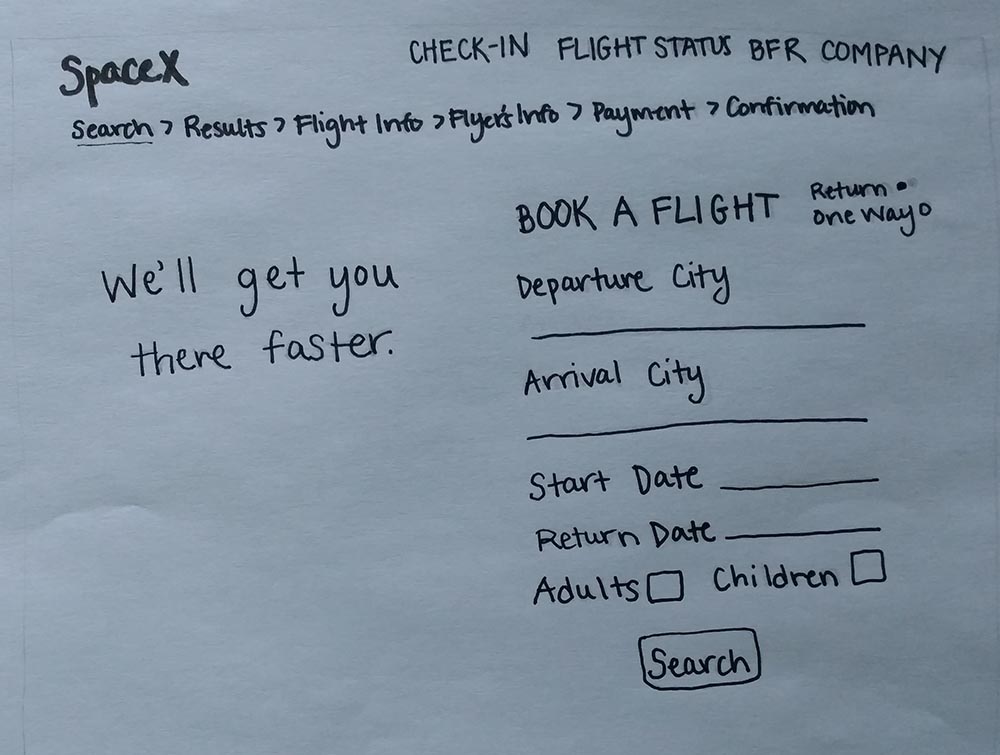 SpaceX
CHECK-IN FLIGHT STATUS BFR COMPANY
Search > Results > Flight Info > Flyer's Info > Payment > Confirmation
We'll get you
there faster.
BOOK A FLIGHT
Return
one way
Departure City
Arrival City
Start Date
Return Date
Adults Children
Search